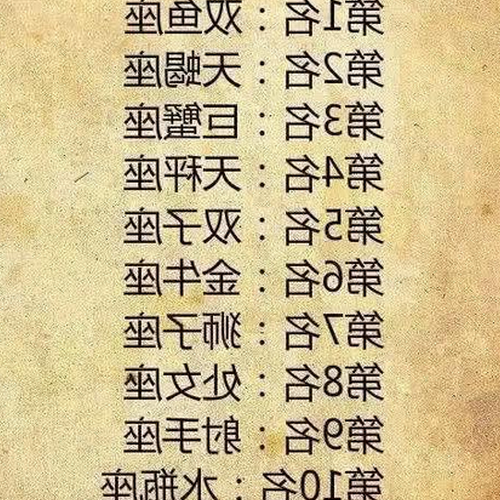 第1名：双鱼座
第2名：天蝎座
第3名：巨蟹座
第4名：天秤座
第5名：双子座
第6名：金牛座
第7名：狮子座
第8名：处女座
第9名：射手座
第10名：水瓶座